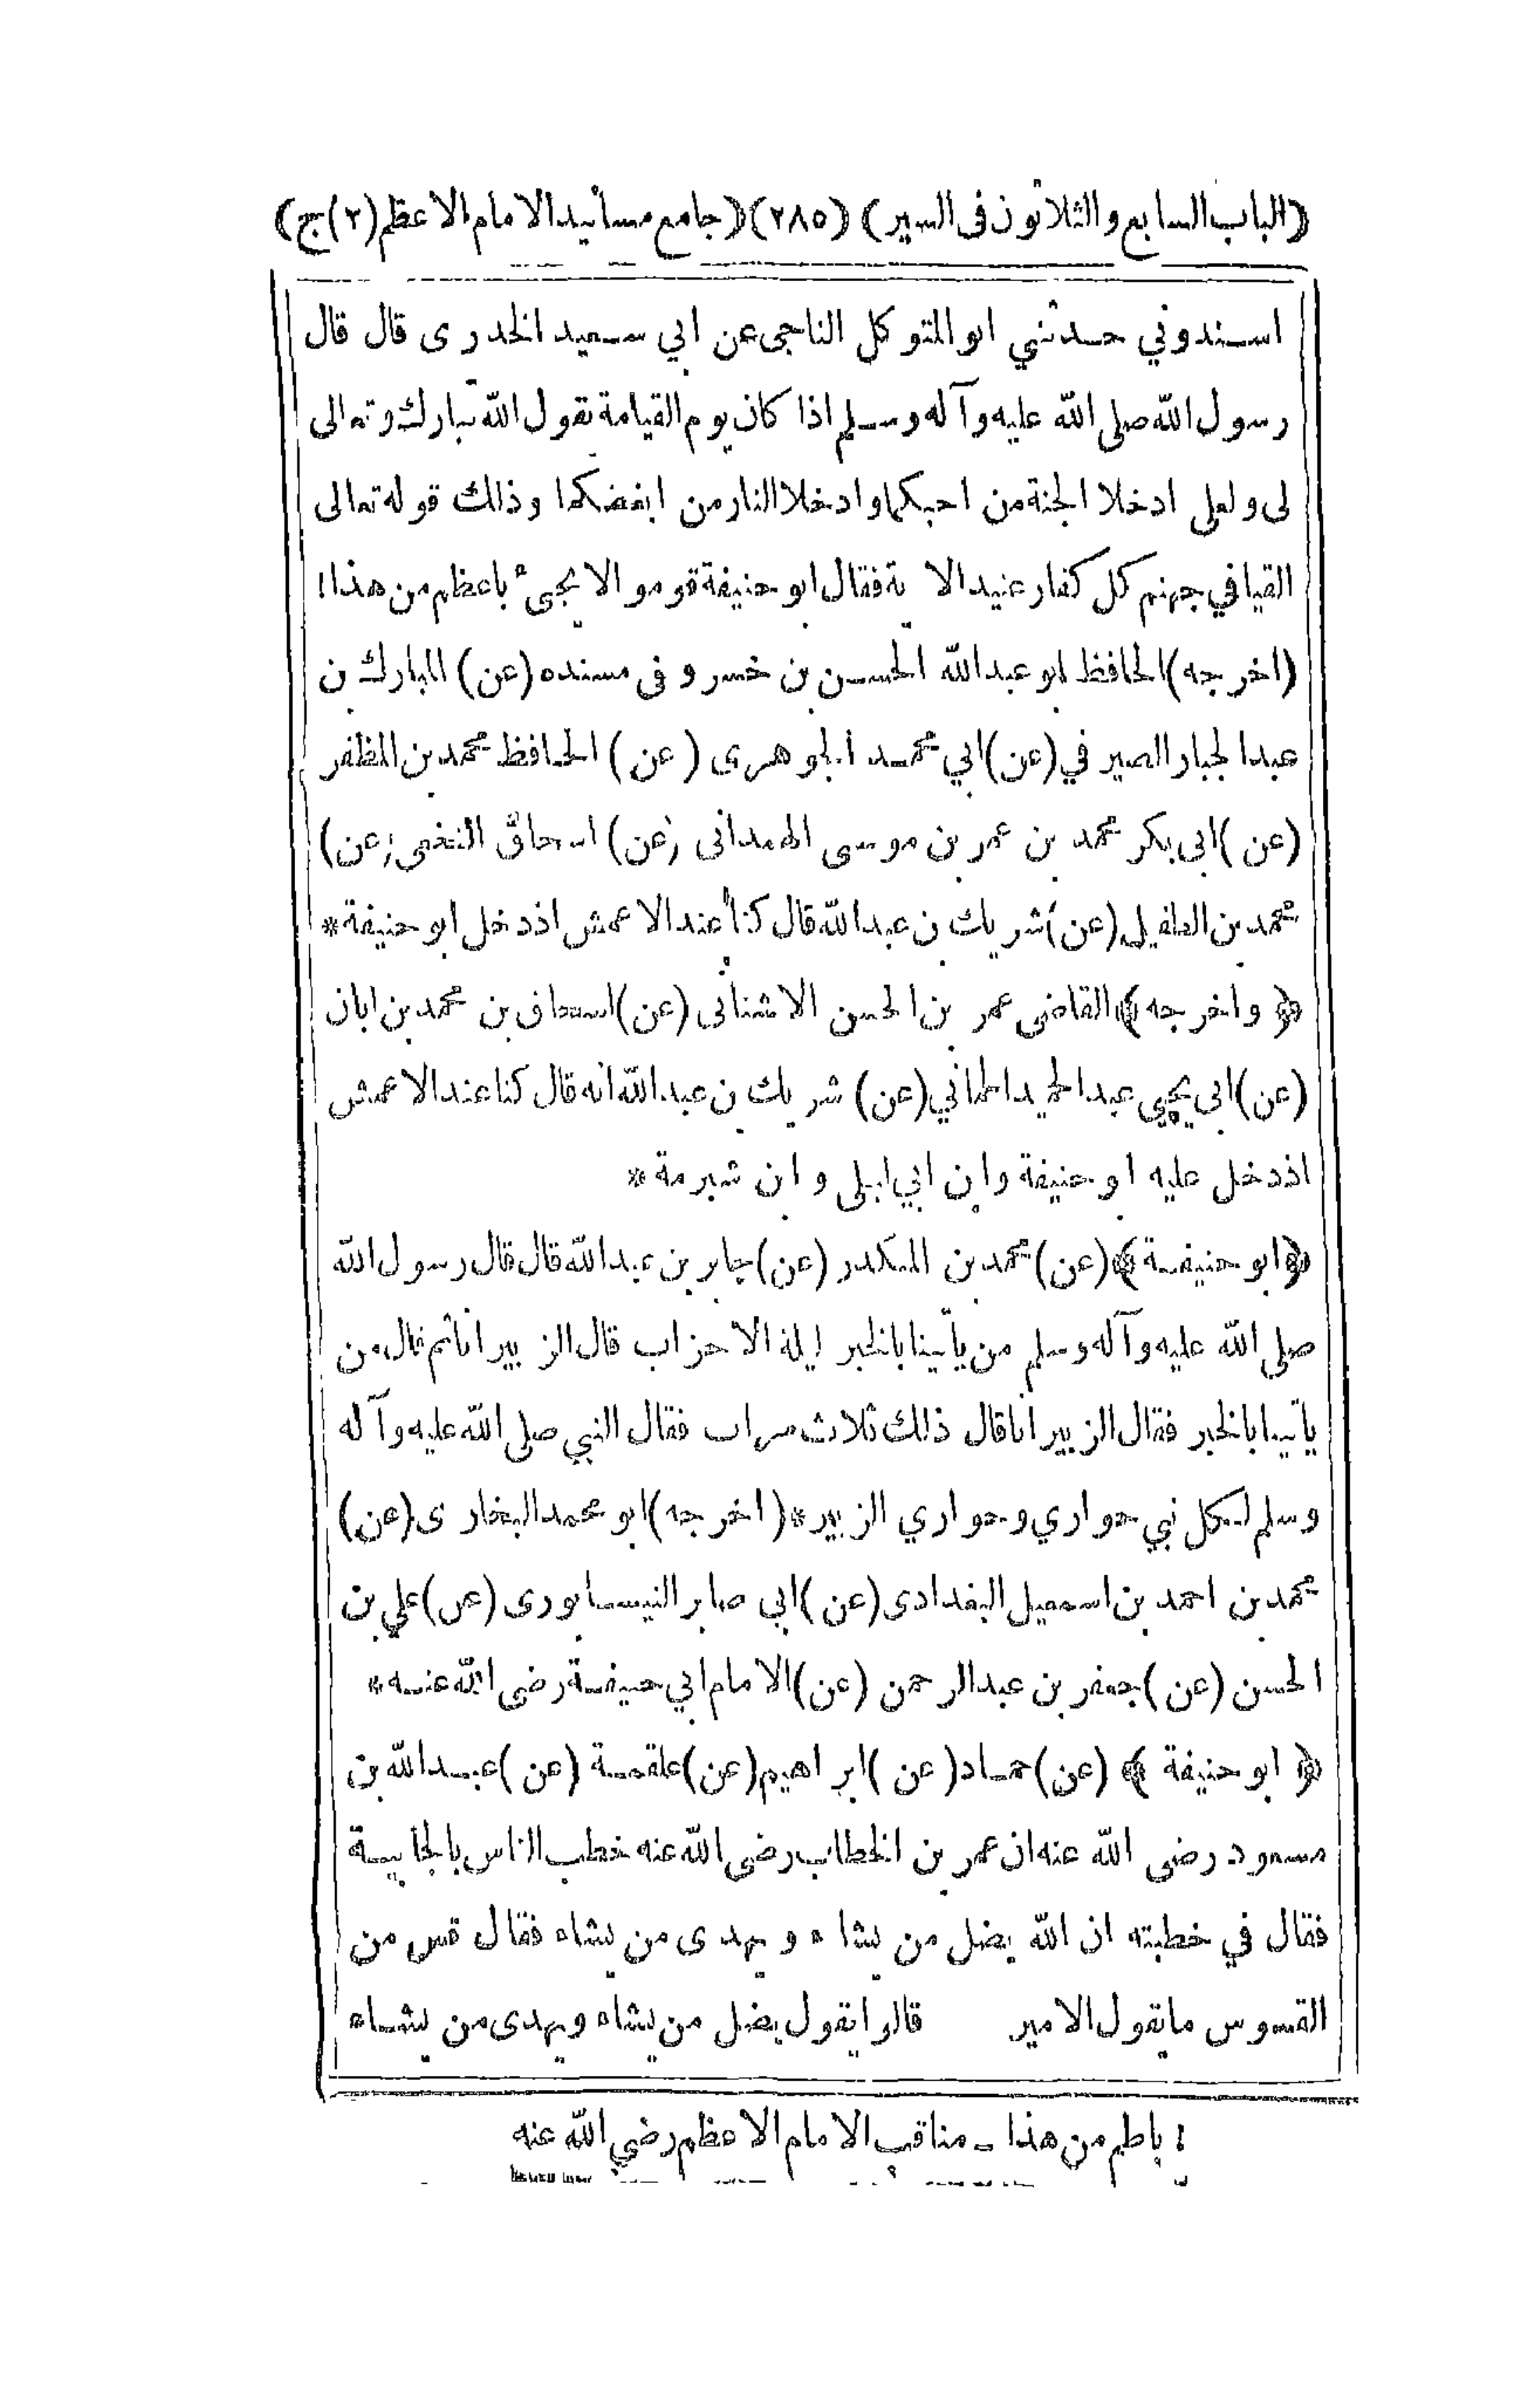 (الباب السابع والثلاثون فى السير) (٢٨٥) (جامع مسانيد الامام الاعظم (٢) ج)
اسندونى حدثني ابو المتوكل الناجى عن ابي سعيد الخدرى قال قال
رسول الله صلى الله عليه وآله وسلم اذا كان يوم القيامة يقول الله تبارك وتعالى
لى ولعلى ادخلا الجنة من احبكما وادخلا النار من ابغضكما وذلك قوله تعالى
القيا في جهنم كل كفار عنيد الآية فقال ابو حنيفة قوموا لا يجئ باعظم من هذا !
(اخرجه) الحافظ ابو عبد الله الحسين بن خسرو فى مسنده (عن) المبارك بن
عبد الجبار الصيرفي (عن) ابي محمد الجوهرى (عن) الحافظ محمد بن المظفر
(عن) ابى بكر محمد بن عمر بن موسى الهمدانى (عن) اسحاق النخعى (عن)
محمد بن الطفيل (عن) شريك بن عبد الله قال كنا عند الاعمش اذ دخل ابو حنيفة *
﴿ واخرجه ﴾ القاضى عمر بن الحسن الاشنانى (عن) اسحاق بن محمد بن ابان
(عن) ابى يحيى عبد الحميد الحمانى (عن) شريك بن عبد الله انه قال كنا عند الاعمش
اذ دخل عليه ابو حنيفة وابن ابي ليلى وابن شبرمة *
﴿ ابو حنيفة ﴾ (عن) محمد بن المنكدر (عن) جابر بن عبد الله قال قال رسول الله
صلى الله عليه وآله وسلم من يأتينا بالخبر ليلة الاحزاب قال الزبير انا ثم قال من
يأتينا بالخبر فقال الزبير انا قال ذلك ثلاث مرات فقال النبي صلى الله عليه وآله
وسلم لكل نبي حواري وحواري الزبير * (اخرجه) ابو محمد البخارى (عن)
محمد بن احمد بن اسمعيل البغدادى (عن) ابي صابر النيسابورى (عن) علي بن
الحسن (عن) جعفر بن عبد الرحمن (عن) الامام ابي حنيفة رضى الله عنه *
﴿ ابو حنيفة ﴾ (عن) حماد (عن) ابراهيم (عن) علقمة (عن) عبد الله بن
مسعود رضى الله عنه ان عمر بن الخطاب رضى الله عنه خطب الناس بالجابية
فقال في خطبته ان الله يضل من يشاء ويهدى من يشاء فقال قس من
القسوس ما يقول الامير قالوا يقول يضل من يشاء ويهدى من يشاء
! باطم من هذا ـ مناقب الامام الاعظم رضي الله عنه